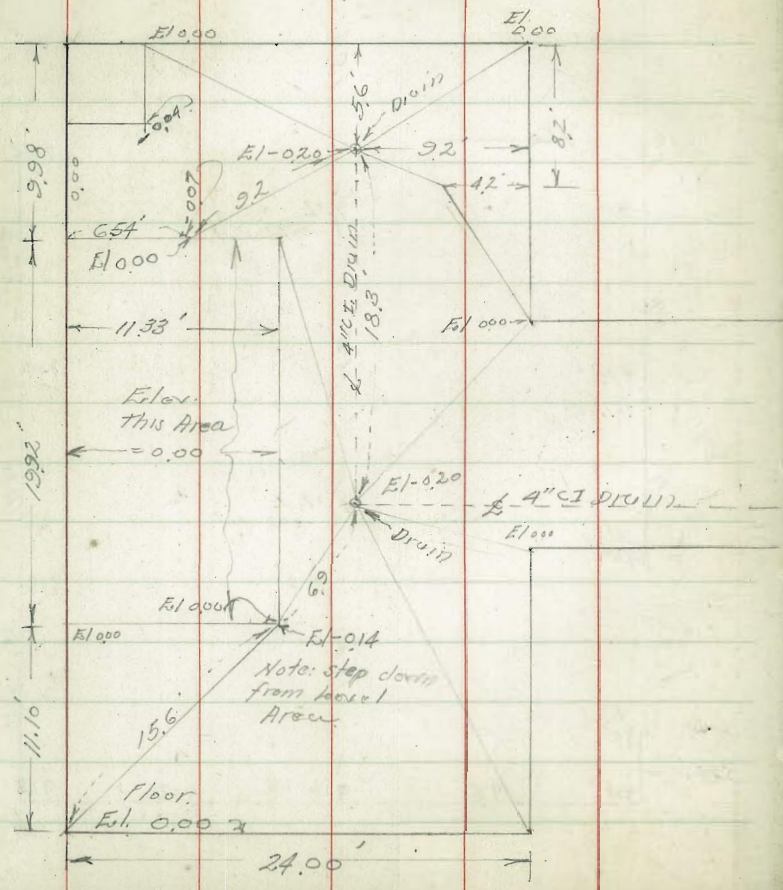 El 0.00
El.
0.00
5.6'
Drain
0.04
8.2'
9.98'
0.00
El-0.20
9.2'
4.2'
9.2
6.54'
El 0.00
11.33'
℄ 4"CI Drain
18.3'
El 0.00
Elev.
this Area
= 0.00
19.92'
El-0.20
℄ 4"CI Drain
Drain
El 0.00
6.9
El 0.00
El 0.00
El-0.14
Note: step down
from level
Area
15.6
11.10'
Floor.
El. 0.00
24.00'